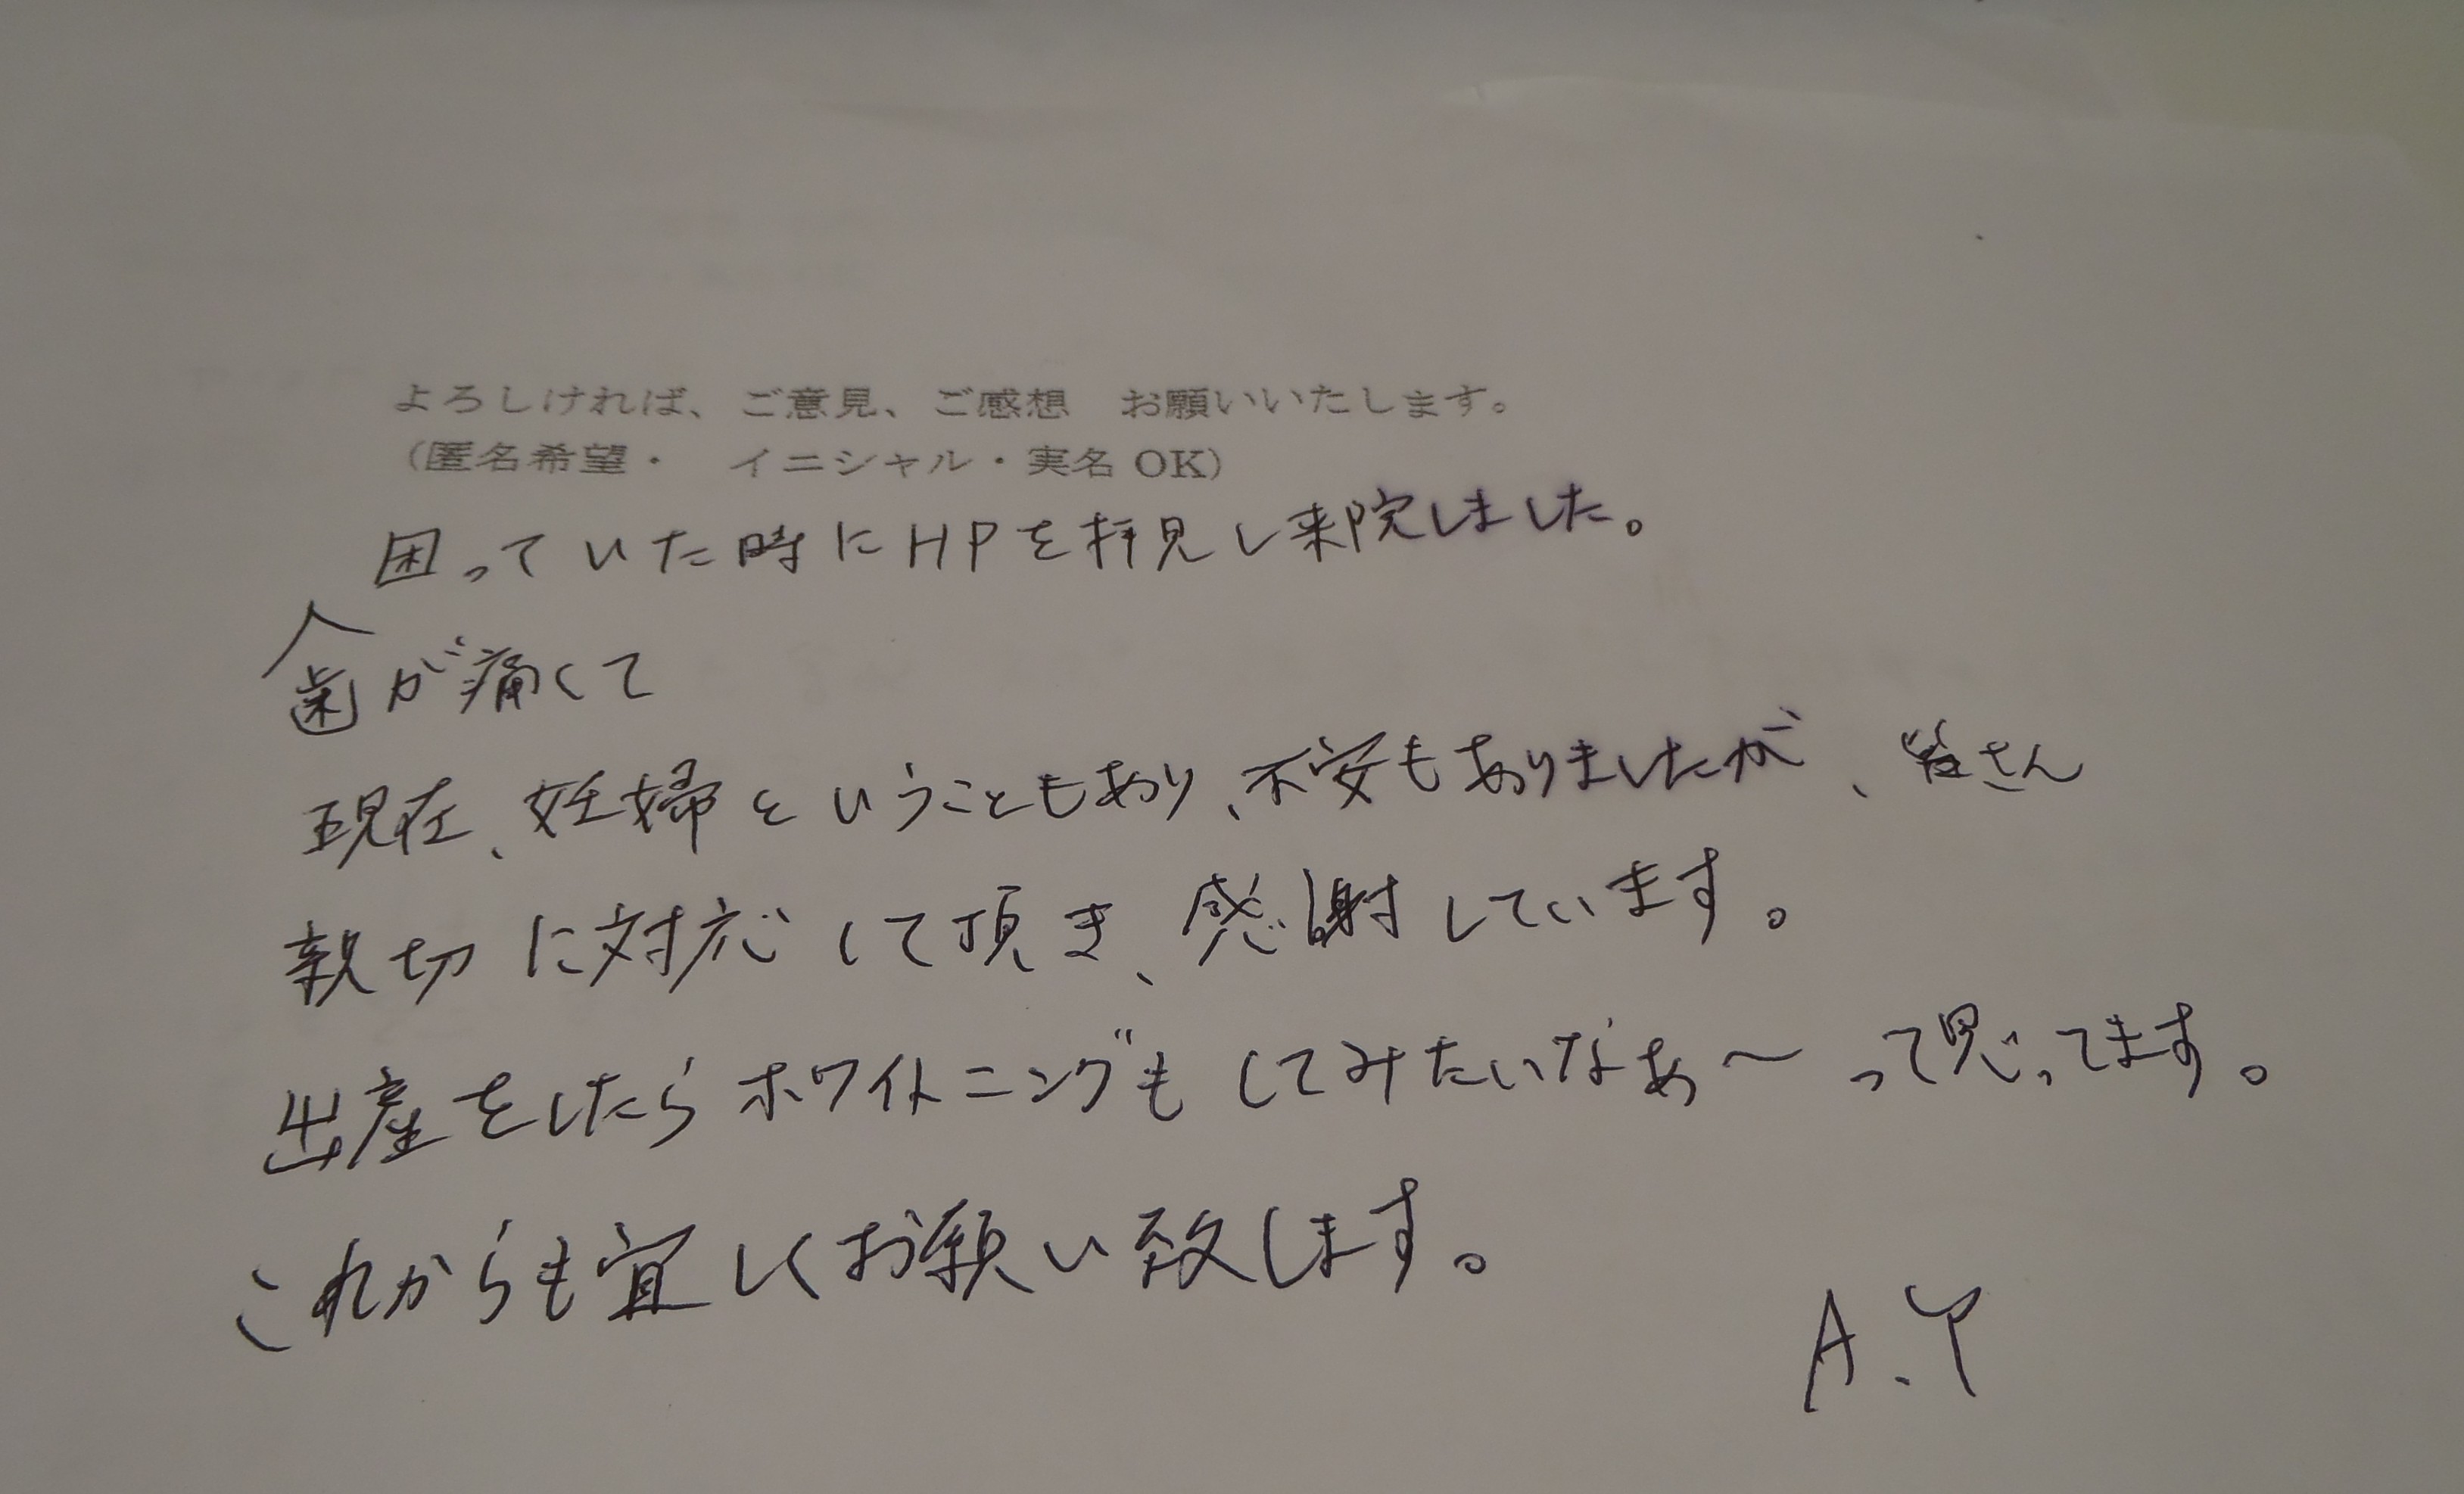 よろしければ、ご意見、ご感想　お願いいたします。
（匿名希望・　イニシャル・実名 OK）
困っていた時にHPを拝見し来院しました。
歯が痛くて
現在、妊婦ということもあり、不安もありましたが、皆さん
親切に対応して頂き、感謝しています。
出産をしたらホワイトニングもしてみたいなぁ〜って思ってます。
これからも宜しくお願い致します。
A.Y